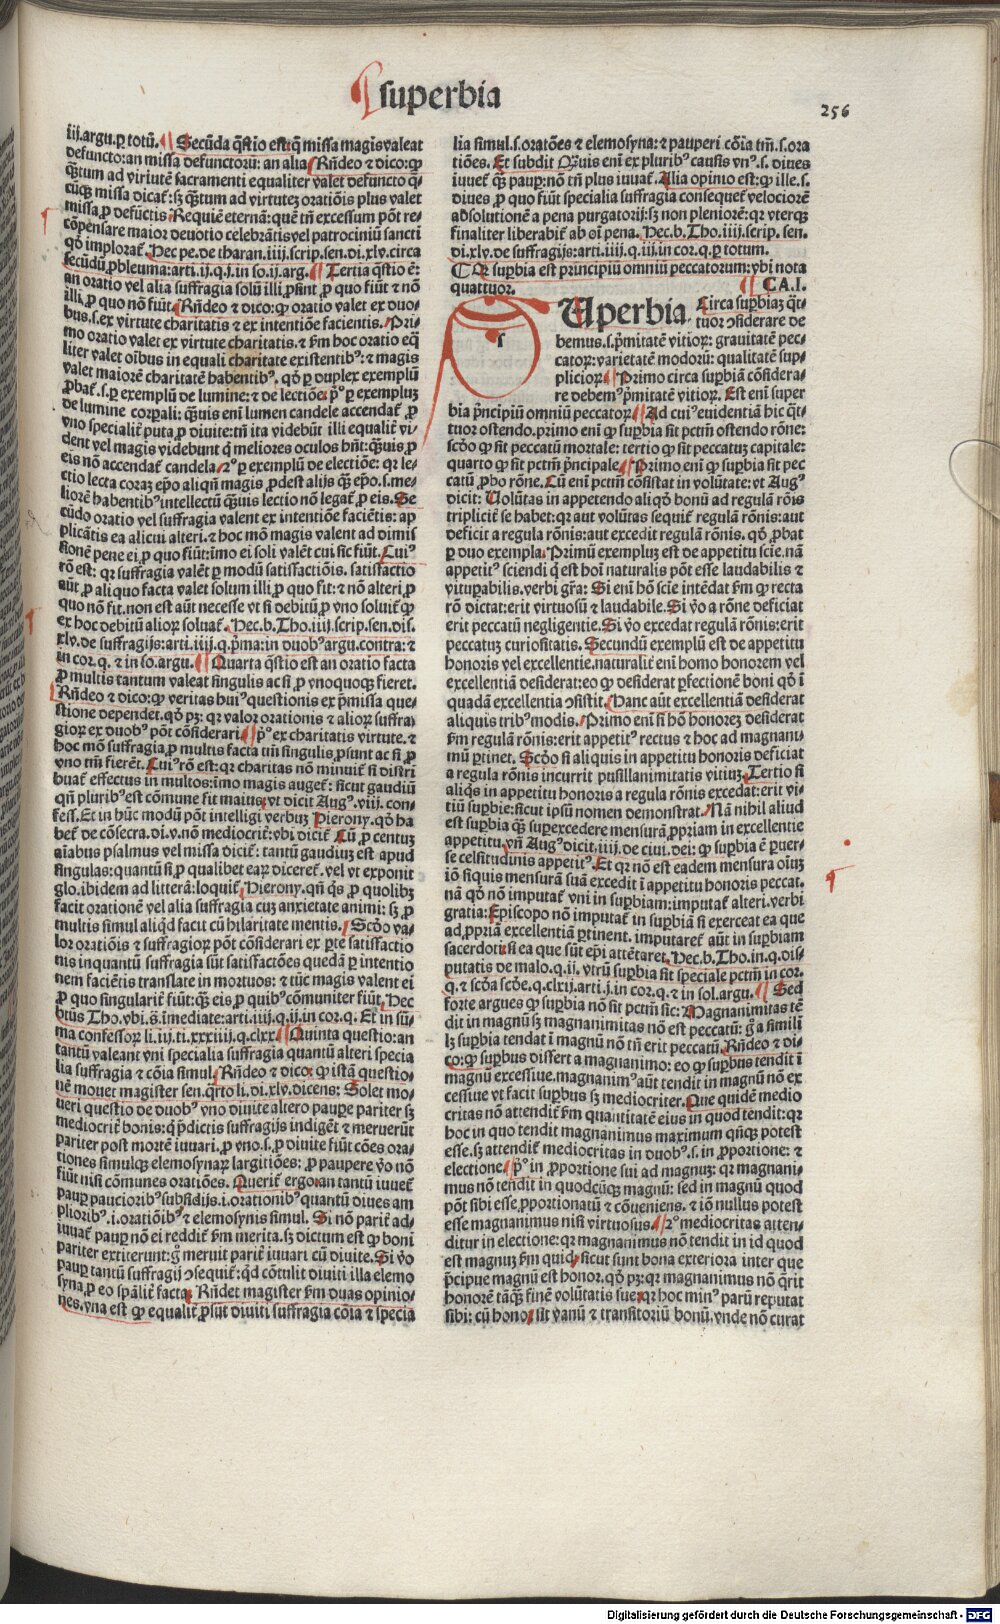 ¶superbia
256
iij.argu.ꝑ totū. ¶ Secūda q̄stio est: q̄ missa magis valeat
defuncto: an missa defunctorū: an alia. Rn̄deo ⁊ dico: ꝙ
q̄ꝫtum ad virtutē sacramenti equaliter valet defuncto q̄-
cūqꝫ missa dicat᷑: sꝫ q̄ꝫtum ad virtuteꝫ orōnis plus valet
missa ꝓ defūctis. Requiē eternā: quē tn̄ excessum pōt re-
cōpensare maior deuotio celebrātis vel patrociniū sancti
qd̓ implorat᷑. Hec pe. de tharan. iiij. scrip. sen. di. xlv. circa
secūdū ꝓbleuma: arti. ij. q. j. in so. ij. arg. ¶ Tertia q̄stio ē:
an oratio vel alia suffragia solū illi ꝓsint ꝓ quo fiūt ⁊ nō
illi ꝓ quo nō fiūt. Rn̄deo ⁊ dico: ꝙ oratio valet ex duo-
bus. s. ex virtute charitatis ⁊ ex intentiōe facientis. Pri-
mo oratio valet ex virtute charitatis. ⁊ ẜm hoc oratio eq̄
liter valet oībus in equali charitate existentibꝰ: ⁊ magis
valet maiorē charitatē habentibꝰ. qd̓ ꝑ duplex exemplū
ꝓbat᷑. s. ꝑ exemplū de lumine: ⁊ de lectiōe. pº ꝑ exempluꝫ
de lumine corꝑali: q̄uis eni lumen candele accendat᷑ ꝓ
vno specialit᷑ puta ꝓ diuite: tn̄ ita videbūt illi equalit᷑ vi-
dent vel magis videbunt q̄ meliores oculos hn̄t: q̄uis ꝓ
eis nō accendat᷑ candela. 2º ꝑ exemplū de electiōe: qr le-
ctio lecta coraꝫ ep̄o aliqn̄ magis ꝓdest alijs q̄ꝫ ep̄o. s. me-
liorē habentibꝰ intellectū q̄uis lectio nō legat᷑ ꝓ eis. Se
cūdo oratio vel suffragia valent ex intentiōe faciētis: ap
plicātis ea alicui alteri. ⁊ hoc mō magis valent ad dimis
sionē pene ei ꝓ quo fiūt: īmo ei soli valēt cui sic fiūt. Cuiꝰ
rō est: qr suffragia valēt ꝑ modū satisfactiōis. satisfactio
aūt ꝓ aliquo facta valet solum illi ꝓ quo fit: ⁊ nō alteri ꝓ
quo nō fit. non est aūt necesse vt si debitū ꝓ vno soluit᷑ ꝙ
ex hoc debitū alioꝝ soluat᷑. Hec. b. Tho. iiij. scrip. sen. dis.
xlv. de suffragijs: arti. iiij. q. p̄ma: in duobꝰ argu. contra: ⁊
in cor. q. ⁊ in so. argu. ¶ Quarta q̄stio est an oratio facta
ꝓ multis tantum valeat singulis ac si ꝓ vnoquoqꝫ fieret.
Rn̄deo ⁊ dico: ꝙ veritas huiꝰ questionis ex p̄missa que-
stione dependet. qd̓ pꝫ: qr valor orationis ⁊ alioꝝ suffra
gioꝝ ex duobꝰ pōt cōsiderari. ¶ pº ex charitatis virtute. ⁊
hoc mō suffragia ꝓ multis facta tm̄ singulis ꝓsunt ac si ꝓ
vno tm̄ fierēt. Cuiꝰ rō est: qr charitas nō minuit᷑ si distri
buat᷑ effectus in multos: īmo magis auget᷑: sicut gaudiū
qn̄ pluribꝰ est cōmune fit maius: vt dicit Augꝰ. viij. con-
fess. Et in hūc modū pōt intelligi verbuꝫ Hierony. qd̓ ha
bet᷑ de cōsecra. di. v. nō mediocrit᷑: vbi dicit᷑. Cū ꝓ centuꝫ
aīabus psalmus vel missa dicit᷑: tantū gaudiuꝫ est apud
singulas: quantū si ꝓ qualibet eaꝝ diceret᷑. vel vt exponit
glo. ibidem ad litterā: loquit᷑. Hierony. qn̄ q̄s ꝓ quolibꝫ
facit orationē vel alia suffragia cuꝫ anxietate animi: sꝫ ꝓ
multis simul aliqd̓ facit cū hilaritate mentis. Scd̓o va-
lor oratiōis ⁊ suffragioꝝ pōt cōsiderari ex ꝑte satisfactio
nis inquantū suffragia sūt satisfactōes quedā ꝑ intentio
nem faciētis translate in mortuos: ⁊ tūc magis valent ei
ꝓ quo singularit᷑ fiūt: q̄ꝫ eis ꝓ quibꝰ cōmuniter fiūt. Hec
btūs Tho. vbi. s̄. īmediate: arti. iiij. q. ij. in cor. q. Et in sū-
ma confessoꝝ li. iij. ti. xxxiiij. q. clxx. ¶ Quinta questio: an
tantū valeant vni specialia suffragia quantū alteri specia
lia suffragia ⁊ cōia simul. Rn̄deo ⁊ dico: ꝙ istā questio-
nē mouet magister sen. q̄rto li. di. xlv. dicens: Solet mo-
ueri questio de duobꝰ vno diuite altero pauꝑe pariter sꝫ
mediocrit᷑ bonis: q̄ p̄dictis suffragijs indigēt ⁊ meruerūt
pariter post mortē iuuari. ꝓ vno. s. ꝓ diuite fiūt cōes ora-
tiones simulqꝫ elemosynaꝝ largitiōes: ꝓ paupere v̓o nō
fiūt nisi cōmunes oratiōes. Querit᷑ ergo: an tantū iuuet᷑
pauꝑ pauciorībꝰ subsidijs. i. orationibꝰ quantū diues am
plioribꝰ. i. oratiōibꝰ ⁊ elemosynis simul. Si nō parit᷑ ad-
iuuat᷑ pauꝑ nō ei reddit᷑ ẜm merita. sꝫ dictum est ꝙ boni
pariter extiterunt: gͦ meruit parit᷑ iuuari cū diuite. Si v̓o
pauꝑ tantū suffragij ꝯsequit᷑: qd̓ cōtulit diuiti illa elemo
syna ꝓ eo sp̄alit᷑ facta. Rn̄det magister ẜm duas opinio-
nes. vna est ꝙ equalit᷑ ꝓsūt diuiti suffragia cōia ⁊ specia
lia simul. s. oratōes ⁊ elemosyna: ⁊ pauperi cōia tm̄. s. ora
tiōes. Et subdit Q̄uis eni ex pluribꝰ causis vnꝰ. s. diues
iuuet᷑ q̄ꝫ pauꝑ: nō tn̄ plus iuuat᷑. Alia opinio est: ꝙ ille. s.
diues ꝓ quo fiūt specialia suffragia consequet᷑ velociorē
absolutionē a pena purgatorij: sꝫ non pleniorē: qr vterqꝫ
finaliter liberabit᷑ ab oī pena. Hec. b. Tho. iiij. scrip. sen.
di. xlv. de suffragijs: arti. iiij. q. iij. in cor. q. ꝑ totum.
¶ Qr suꝑbia est principiū omniū peccatorum: vbi nota
quattuor. ¶ CA. I.
s
Uperbia. Circa suꝑbiaꝫ q̄t-
tuor ꝯsiderare de
bemus. s. p̄mitatē vitioꝝ: grauitatē pec-
catoꝝ: varietatē modorū: qualitatē sup-
plicioꝝ. ¶ Primo circa suꝑbiā cōsidera-
re debemꝰ p̄mitatē vitioꝝ. Est eni super
bia p̄ncipiū omniū peccatoꝝ. ¶ Ad cuiꝰ euidentiā hic q̄t-
tuor ostendo. primo eni ꝙ suꝑbia sit pctm̄ ostendo rōne:
scd̓o ꝙ sit peccatū mortale: tertio ꝙ sit peccatuꝫ capitale:
quarto ꝙ sit pctm̄ p̄ncipale. ¶ Primo eni ꝙ suꝑbia sit pec
catū ꝓbo rōne. Cū eni pctm̄ cōsistat in volūtate: vt Augꝰ
dicit: Volūtas in appetendo aliqd̓ bonū ad regulā rōis
triplicit᷑ se habet: qr aut volūtas sequit᷑ regulā rōnis: aut
deficit a regula rōnis: aut excedit regulā rōnis. qd̓ ꝓbat᷑
ꝑ duo exempla. Primū exempluꝫ est de appetitu scīe. nā
appetitꝰ sciendi q̄ est hoī naturalis pōt esse laudabilis ⁊
vituꝑabilis. verbi gr̄a: Si eni hō scīe intēdat ẜm ꝙ recta
rō dictat: erit virtuosū ⁊ laudabile. Si v̓o a rōne deficiat
erit peccatū negligentie. Si v̓o excedat regulā rōnis: erit
peccatuꝫ curiositatis. Secundū exemplū est de appetitu
honoris vel excellentie. naturalit᷑ eni homo honorem vel
excellentiā desiderat: eo ꝙ desiderat ꝑfectionē boni qd̓ ī
quadā excellentia ꝯsistit. Hanc aūt excellentiā desiderat
aliquis tribꝰ modis. Primo eni si hō honoreꝫ desiderat
ẜm regulā rōnis: erit appetitꝰ rectus ⁊ hoc ad magnani-
mū ꝑtinet. Scd̓o si aliquis in appetitu honoris deficiat
a regula rōnis incurrit pusillanimitatis vitiuꝫ. Tertio si
aliq̄s in appetitu honoris a regula rōnis excedat: erit vi-
tiū suꝑbie: sicut ipsū nomen demonstrat. Nā nihil aliud
est suꝑbia q̄ꝫ suꝑexcedere mensurā ꝓpriam in excellentie
appetitu. vn̄ Augꝰ dicit. iiij. de ciui. dei: ꝙ suꝑbia ē ꝑuer-
se celsitudinis appetitꝰ. Et qr nō est eadem mensura oīuꝫ
iō siquis mensurā suā excedit ī appetitu honoris peccat.
nā qd̓ nō imputat᷑ vni in suꝑbiam: imputat᷑ alteri. verbi
gratia: Episcopo nō imputat᷑ in suꝑbiā si exerceat ea que
ad ꝓpriā excellentiā ꝑtinent. imputaret᷑ aūt in suꝑbiam
sacerdoti: si ea que sūt ep̄i attētaret. Hec. b. Tho. in. q. dis-
putatis de malo. q. ij. vtrū suꝑbia sit speciale pctm̄ in cor.
q. ⁊ scd̓a scd̓e. q. clxij. arti. j. in cor. q. ⁊ in sol. argu. ¶ Sed
forte argues ꝙ suꝑbia nō sit pctm̄ sic: Magnanimitas tē
dit in magnū sꝫ magnanimitas nō est peccatū: gͦ a simili
lꝫ suꝑbia tendat ī magnū nō tn̄ erit peccatū. Rn̄deo ⁊ di-
co: ꝙ suꝑbus differt a magnanimo: eo ꝙ suꝑbus tendit ī
magnū excessiue. magnanimꝰ aūt tendit in magnū nō ex
cessiue vt facit suꝑbus sꝫ mediocriter. Que quidē medio
critas nō attendit᷑ ẜm quantitatē eius in quod tendit: qr
hoc in quo tendit magnanimus maximum qn̄qꝫ potest
esse. sꝫ attendit᷑ mediocritas in duobꝰ. s. in ꝓportione: ⁊
electione. ¶ pº in ꝓportione sui ad magnuꝫ: qr magnani-
mus nō tendit in quodcūqꝫ magnū: sed in magnū quod
pōt sibi esse ꝓportionatū ⁊ cōueniens. ⁊ iō nullus potest
esse magnanimus nisi virtuosus. ¶ 2º mediocritas atten-
ditur in electione: qr magnanimus nō tendit in id quod
est magnuꝫ ẜm quid, sicut sunt bona exteriora inter que
p̄cipue magnū est honor. qd̓ pꝫ: qr magnanimus nō q̄rit
honorē tāq̄ꝫ finē volūtatis sue: qr hoc minꝰ parū reputat
sibi: cū honor sit vanū ⁊ transitoriū bonū. vnde nō curat
Digitalisierung gefördert durch die Deutsche Forschungsgemeinschaft - DFG